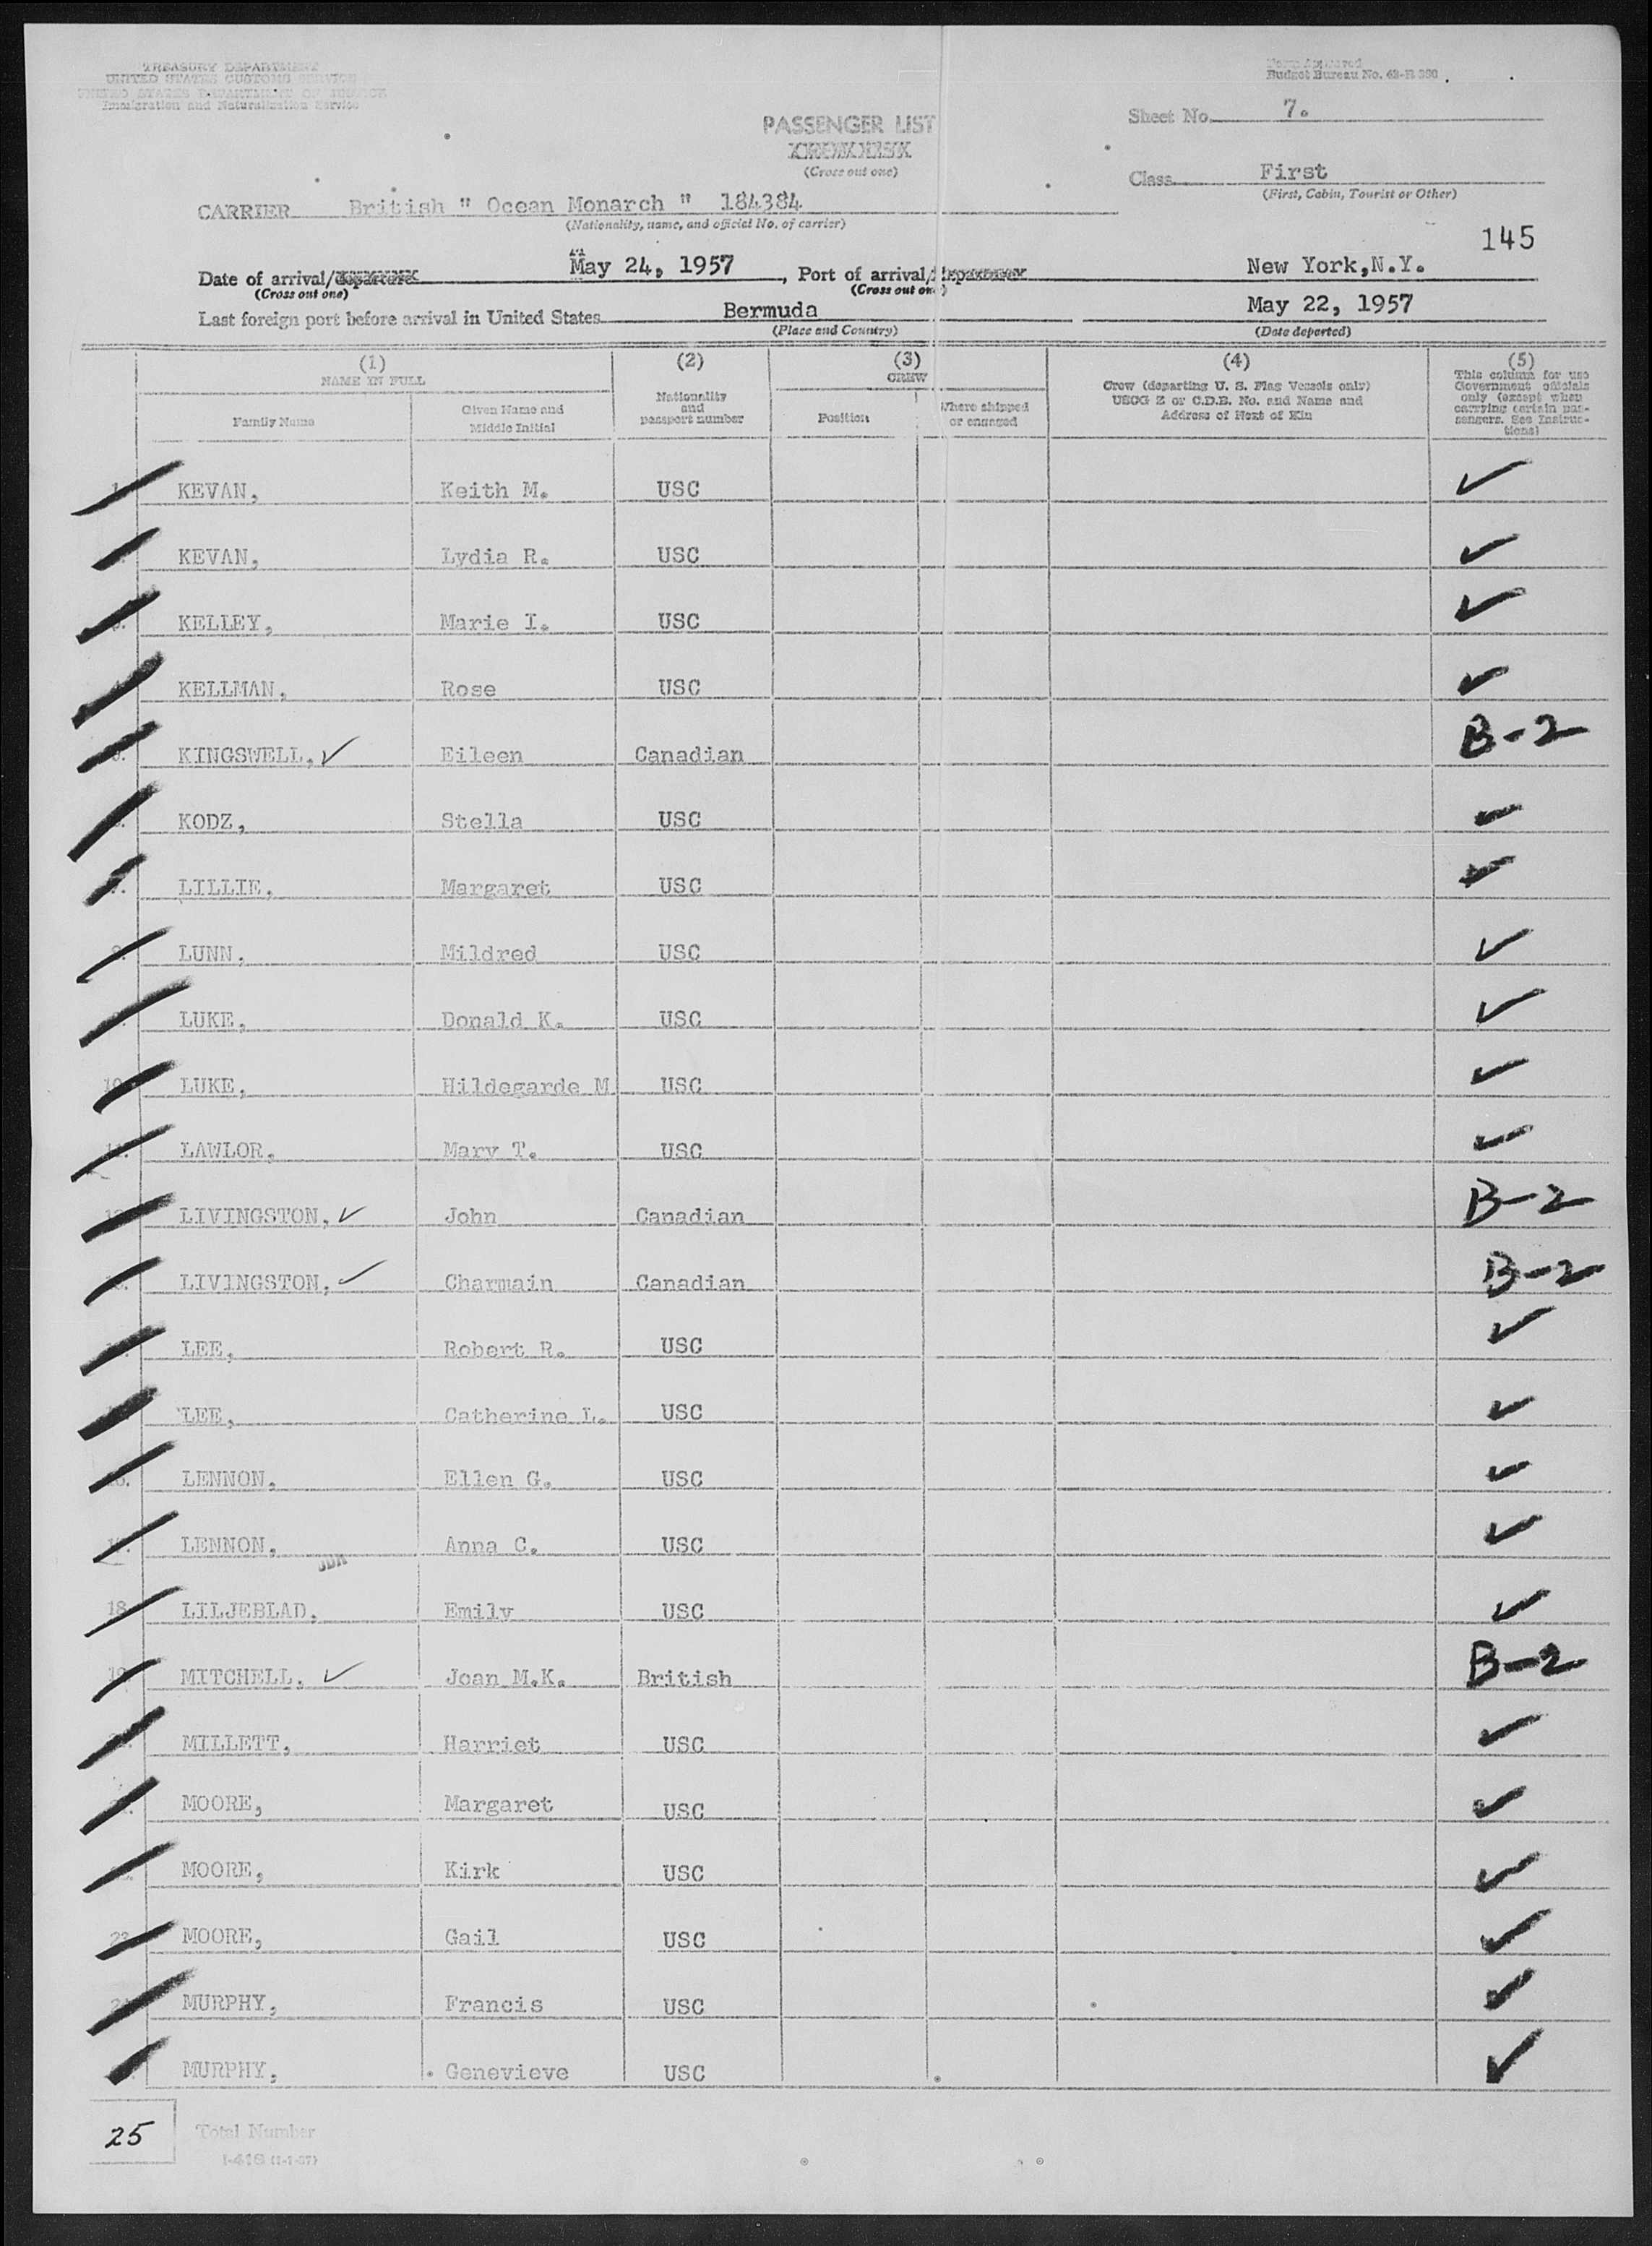 TREASURY DEPARTMENT
UNITED STATES CUSTOMS SERVICE
UNITED STATES DEPARTMENT OF JUSTICE
Immigration and Naturalization Service
Form Approved
Budget Bureau No. 43-R390.
Sheet No. 7.
PASSENGER LIST
(Cross out one)
Class First
(First, Cabin, Tourist or Other)
CARRIER British " Ocean Monarch " 184384
(Nationality, name, and official No. of carrier)
145
Date of arrival/departure May 24, 1957, Port of arrival/departure New York,N.Y.
(Cross out one) (Cross out one)
Last foreign port before arrival in United States Bermuda May 22, 1957
(Place and Country) (Date departed)
(1) (2) (3) (4) (5)
NAME IN FULL
Family Name
Given Name and Middle Initial
Nationality and passport number
CREW
Position
Where shipped or engaged
Crew (departing U. S. Flag Vessels only)
USCG Z or C.D.B. No. and Name and
Address of Next of Kin
This column for use
Government officials
only (except when
carrying certain pas-
sengers. See Instruc-
tions)
KEVAN, Keith M. USC ✓
KEVAN, Lydia R. USC ✓
KELLEY, Marie I. USC ✓
KELLMAN, Rose USC ✓
KINGSWELL, ✓ Eileen Canadian B-2
KODZ, Stella USC ✓
LILLIE, Margaret USC ✓
LUNN, Mildred USC ✓
LUKE, Donald K. USC ✓
10. LUKE, Hildegarde M USC ✓
11. LAWLOR, Mary T. USC ✓
12. LIVINGSTON, ✓ John Canadian B-2
LIVINGSTON, ✓ Charmain Canadian B-2
LEE, Robert R. USC ✓
LEE, Catherine L. USC ✓
LENNON, Ellen G. USC ✓
LENNON, Anna C. USC ✓
18. LILJEBLAD, Emily USC ✓
19. MITCHELL, ✓ Joan M.K. British B-2
MILLETT, Harriet USC ✓
MOORE, Margaret USC ✓
MOORE, Kirk USC ✓
23. MOORE, Gail USC ✓
24. MURPHY, Francis USC ✓
MURPHY, Genevieve USC ✓
25 Total Number
I-418 (1-1-57)